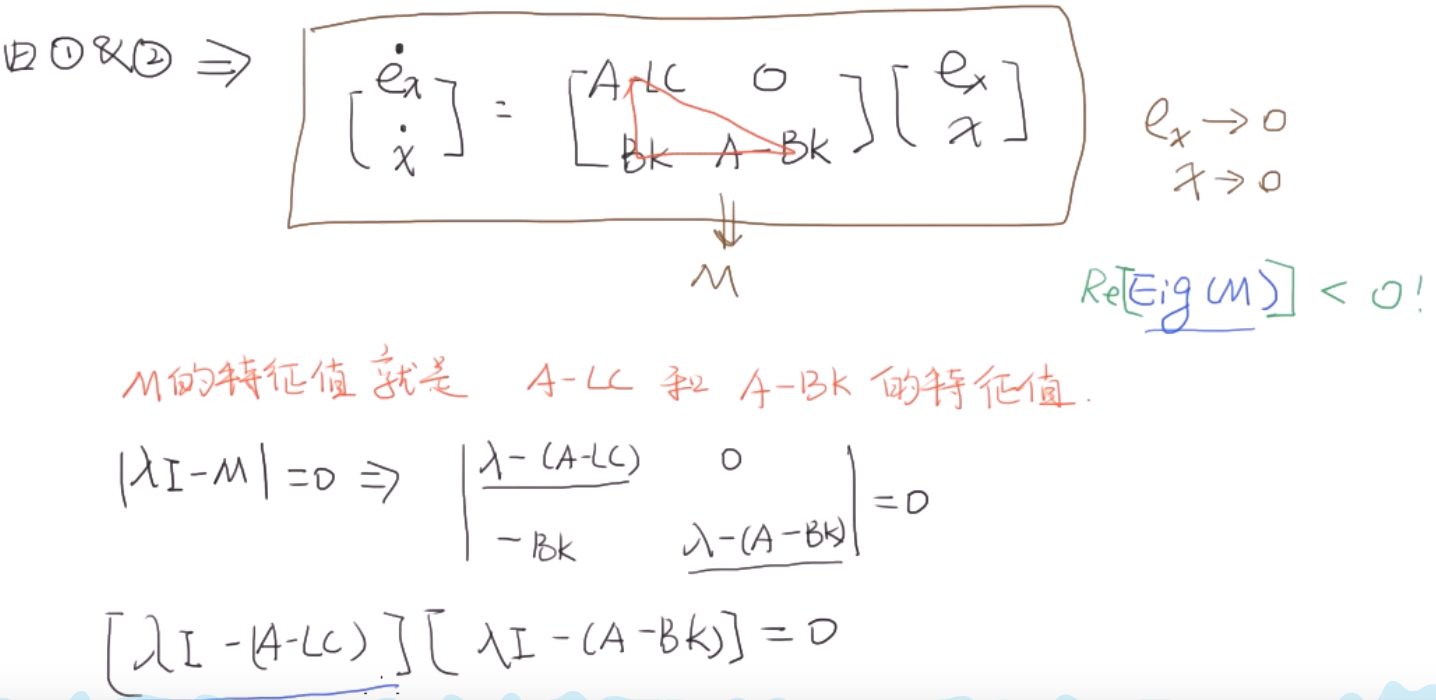 由①&②⇒ [ėx ẋ] = [A-LC 0 Bk A-Bk] [ex x]
ex→0
x→0
⇓
M
Re[Eig(M)] < 0!
M的特征值就是 A-LC 和 A-BK 的特征值.
|λI-M|=0 ⇒ |λ-(A-LC) 0 -Bk λ-(A-Bk)| =0
[λI-(A-LC)][λI-(A-Bk)]=0